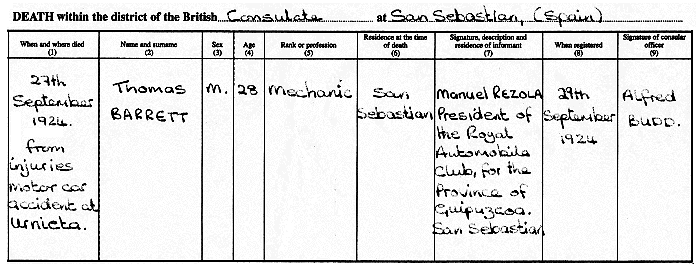 DEATH within the district of the British Consulate at San Sebastian, (Spain)
When and where died
(1)
Name and surname
(2)
Sex
(3)
Age
(4)
Rank or profession
(5)
Residence at the time
of death
(6)
Signature, description and
residence of informant
(7)
When registered
(8)
Signature of consular
officer
(9)
27th
September
1924.
from
injuries
motor car
accident at
Urnieta.
Thomas
BARRETT
M.
28
Mechanic
San
Sebastian
Manuel REZOLA
President of
the Royal
Automobile
Club, for the
Province of
Guipuzcoa.
San Sebastian
29th
September
1924
Alfred
BUDD.